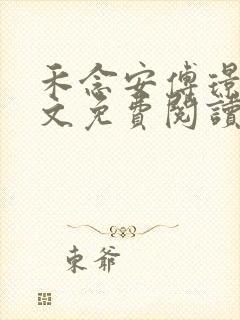 禾念安傅璟
文免費閱讀
東爺